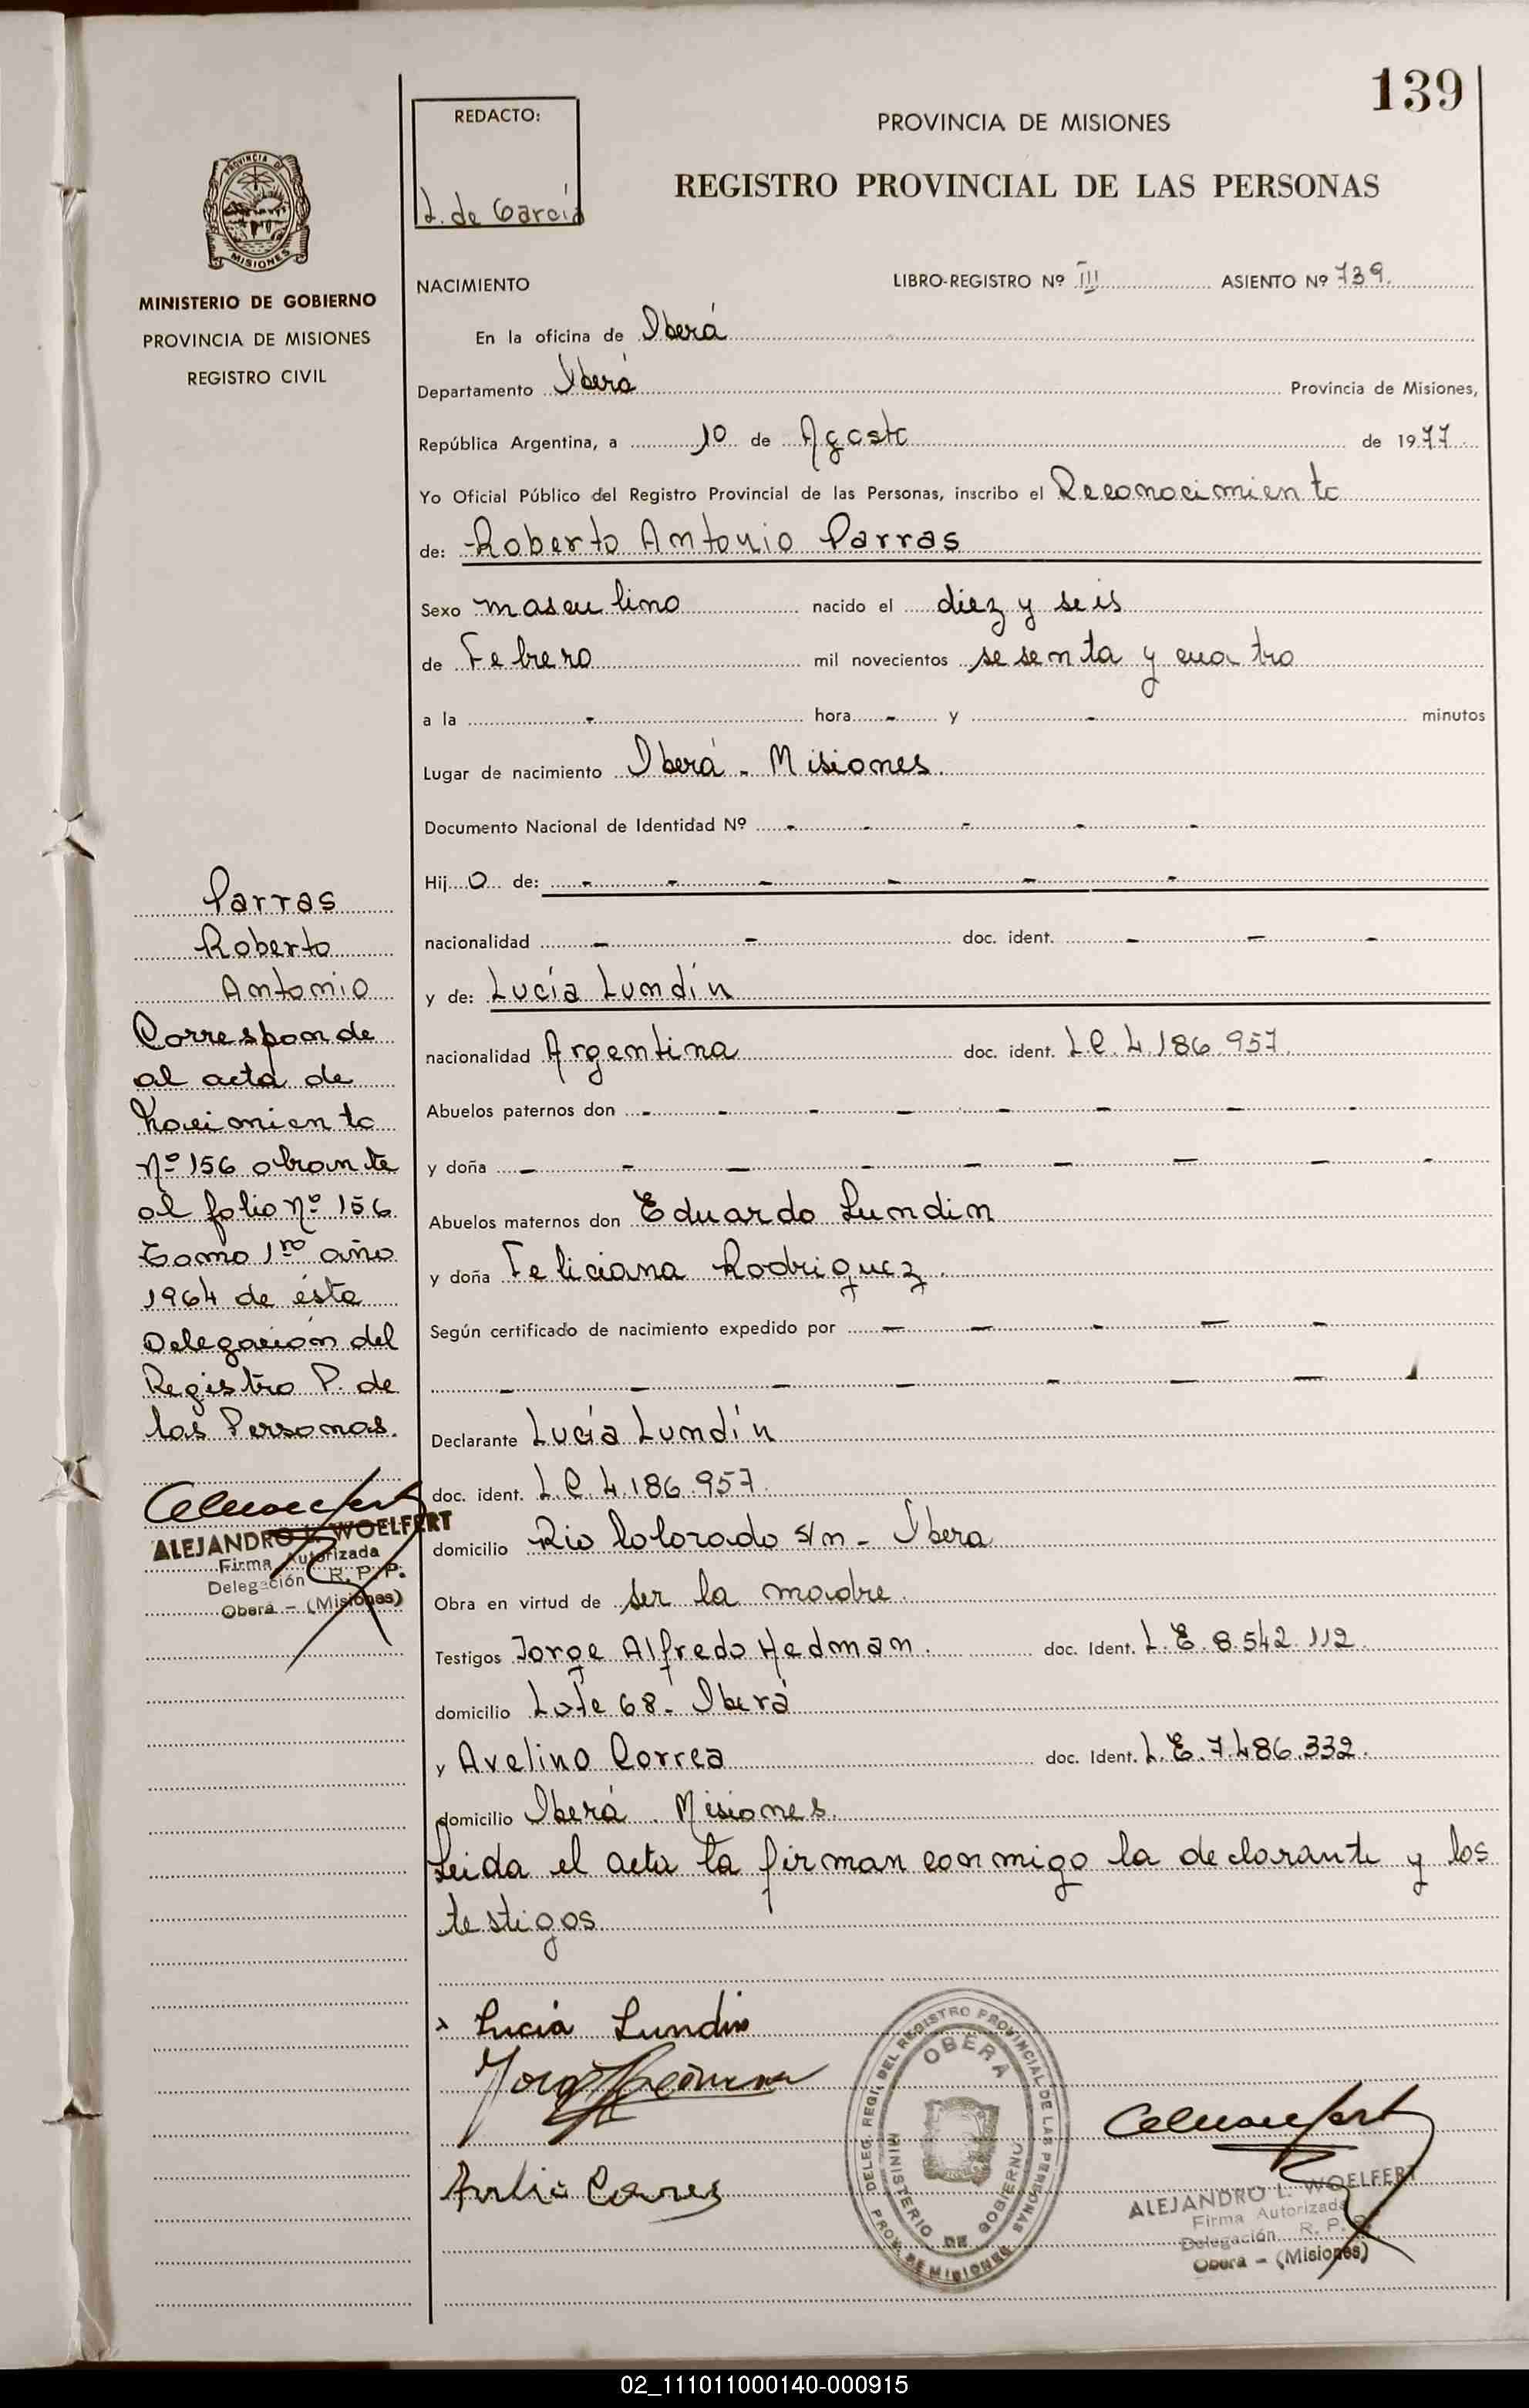 139
REDACTO:
L. de García
PROVINCIA DE MISIONES
REGISTRO PROVINCIAL DE LAS PERSONAS
PROVINCIA DE
MISIONES
MINISTERIO DE GOBIERNO
PROVINCIA DE MISIONES
REGISTRO CIVIL
NACIMIENTO LIBRO-REGISTRO Nº III ASIENTO Nº 739.
En la oficina de Oberá
Departamento Oberá Provincia de Misiones,
República Argentina, a 10 de Agosto de 1977.
Yo Oficial Público del Registro Provincial de las Personas, inscribo el Reconocimiento
de: Roberto Antonio Parras
Sexo masculino nacido el diez y seis
de Febrero mil novecientos sesenta y cuatro
a la - hora - y - minutos
Lugar de nacimiento Oberá - Misiones.
Documento Nacional de Identidad Nº - - - - -
Hij o de: - - - - - -
nacionalidad - - doc. ident. - - -
y de: Lucía Lundín
nacionalidad Argentina doc. ident. L.C. 4.186.957.
Abuelos paternos don - - - - - - - -
y doña - - - - - - - - -
Abuelos maternos don Eduardo Lundin
y doña Feliciana Rodriguez.
Según certificado de nacimiento expedido por - - - - -
- - - - - - -
Declarante Lucía Lundín
doc. ident. L.C. 4.186.957.
domicilio Rio Colorado s/n - Oberá
Obra en virtud de ser la madre.
Testigos Jorge Alfredo Hedman. doc. Ident. L.E. 8.542.112.
domicilio Lote 68 - Oberá
y Avelino Correa doc. Ident. L.E. 7.486.332.
domicilio Oberá. Misiones.
Leida el acta la firman conmigo la declarante y los
testigos
Parras
Roberto
Antonio
Corresponde
al acta de
Nacimiento
Nº 156 obrante
al folio nº 156
Tomo 1ro año
1964 de ésta
Delegación del
Registro P. de
las Personas.
ALEJANDRO L. WOELFERT
Firma Autorizada
Delegación R. P. P.
Oberá - (Misiones)
Lucía Lundin
DELEG. REGI. DEL REGISTRO PROVINCIAL DE LAS PERSONAS
OBERÁ
MINISTERIO DE GOBIERNO
PROV. DE MISIONES
ALEJANDRO L. WOELFERT
Firma Autorizada
Delegación R. P. P.
Oberá - (Misiones)
02_111011000140-000915